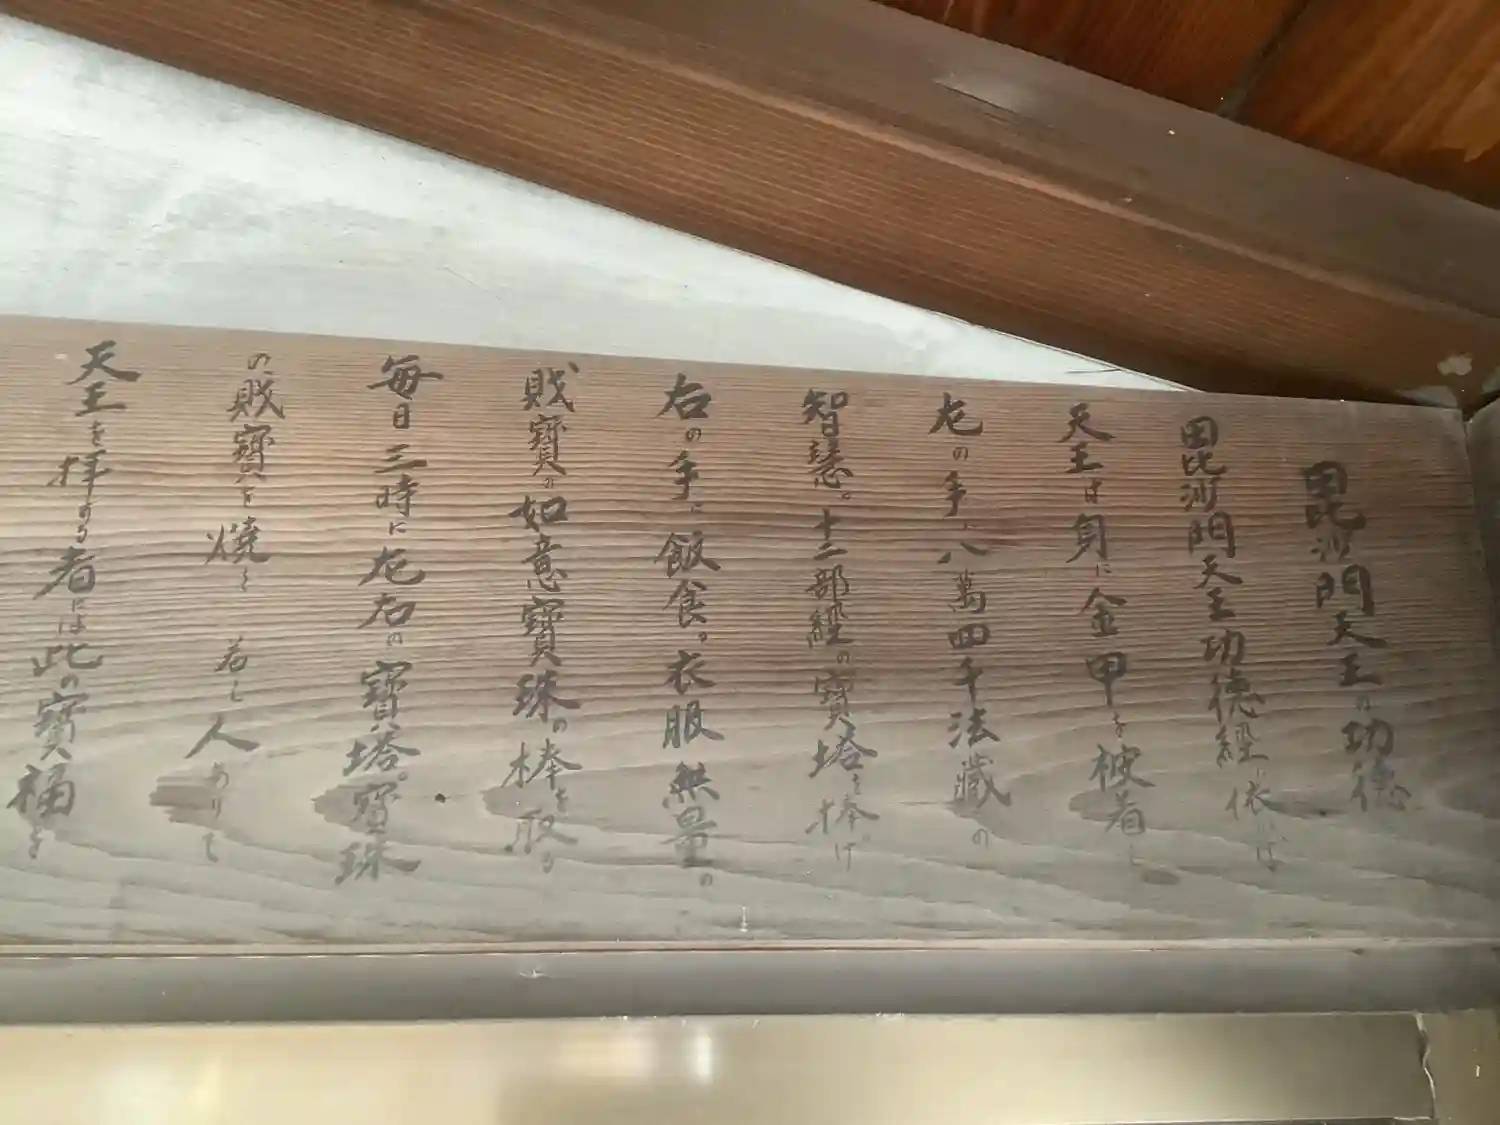 毘沙門天王の功徳
毘沙門天王功徳経に依れば
天王は身に金甲を被着し
左の手に八萬四千法藏の
智慧。十二部經の寶塔を捧げ
右の手に飯食。衣服無量の
財寶の如意寶珠の棒を取る
毎日三時に左右の寶塔。寶珠
の財寶を焼く 若し人ありて
天王を拝する者には此の寶福を